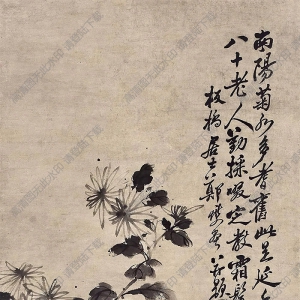 南陽菊水多耆舊此是延
八十老人勤採啜定教霜鬢
板橋居士鄭燮